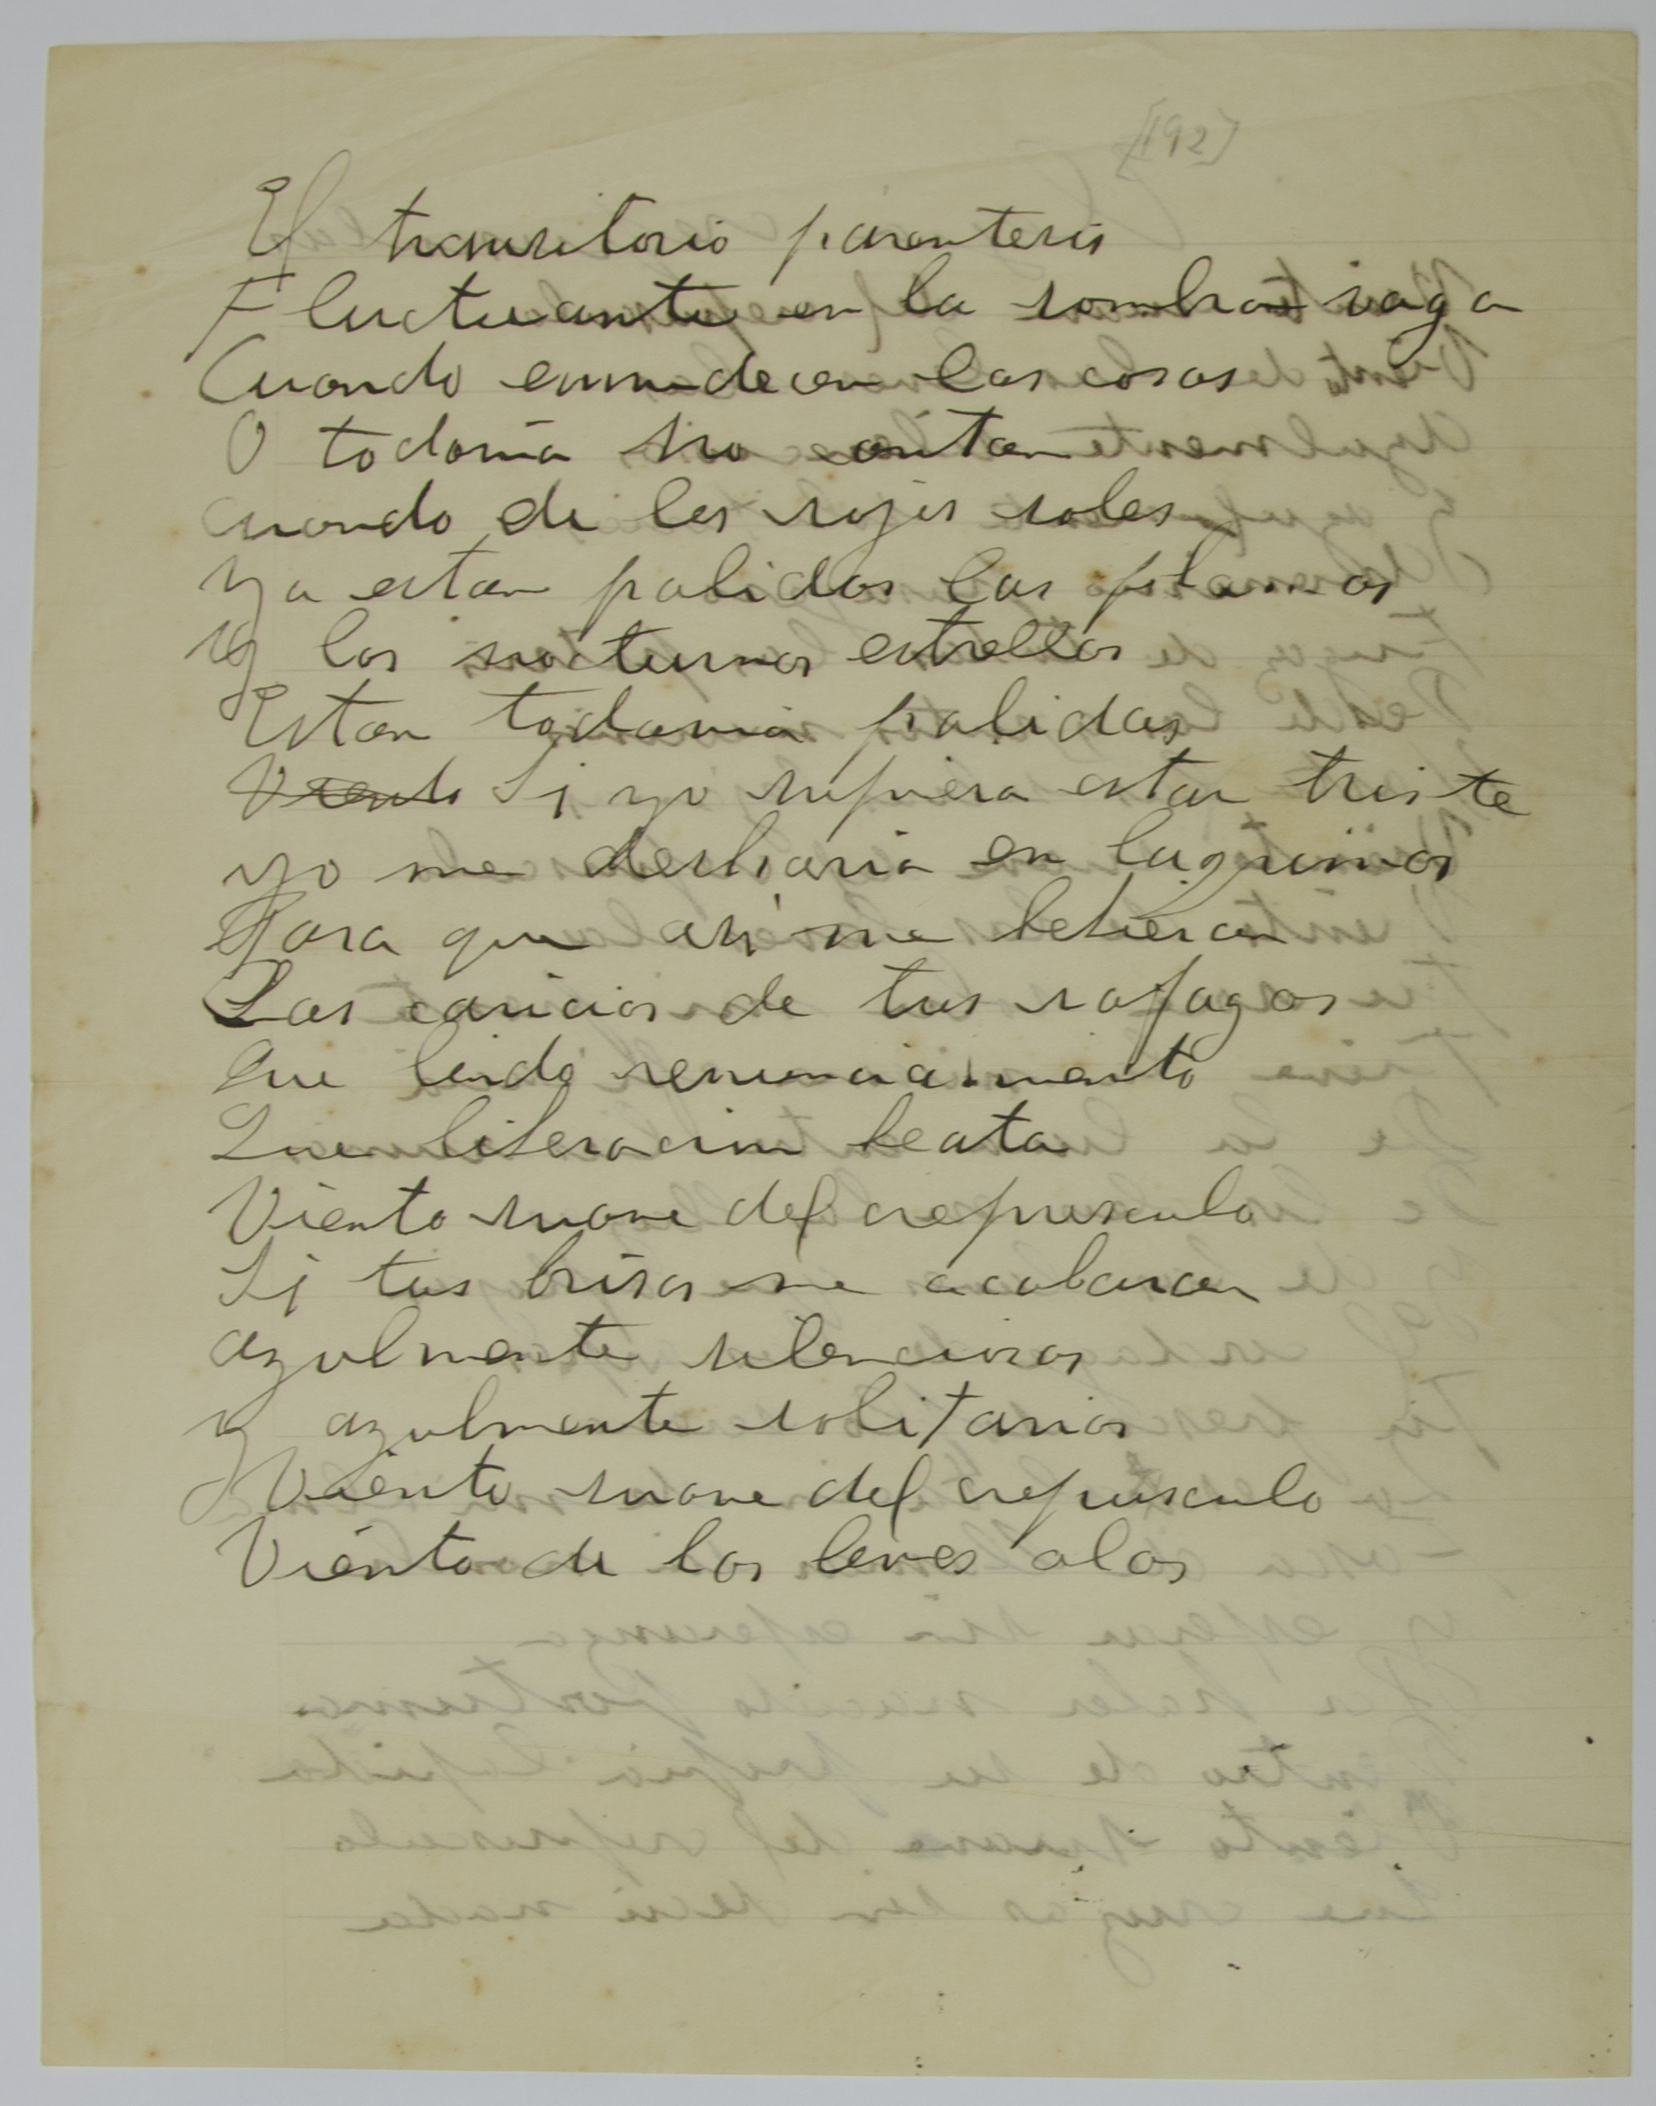 [192]
El transitorio parentesis
Fluctuante en la sombra vaga
Cuando enmudecen las cosas
O todavia no cantan
cuando de los rojos soles
Ya estan palidas las flamas
Y las nocturnas estrellas
Estan todavia palidas
Viento Si yo supiera estar triste
yo me desharia en lagrimas
Para que asi me bebieran
Las caricias de tus rafagas
Que lindo renunciamiento
Que liberacion beata
Viento suave del crepusculo
Si tus brisas me acabaran
azulmente silenciosas
y azulmente solitarias
Viento suave del crepusculo
Viento de las leves alas